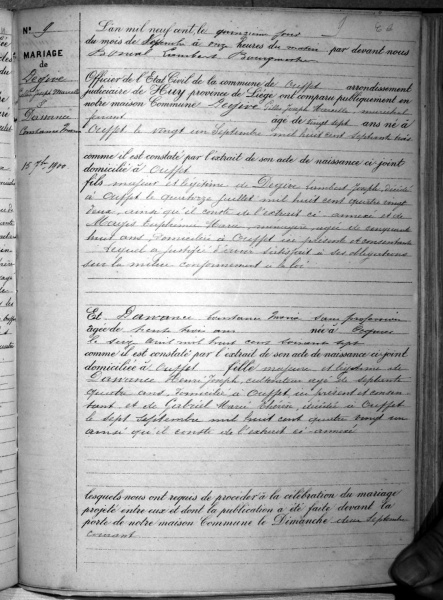 N° 9
MARIAGE
de
Degive
&
Dawance
15 7bre 1900
L'an mil neuf cent, le quinzième jour
du mois de Septembre à onze heures du matin par devant nous
Lambert Bourgmestre
Officier de l'Etat Civil de la commune de Ouffet arrondissement
judiciaire de Huy province de Liége ont comparu publiquement en
notre maison Commune Degive Joseph
âgé de vingt sept ans né à
Ouffet le vingt un Septembre mil huit cent septante trois
comme il est constaté par l'extrait de son acte de naissance ci-joint
domicilié à Ouffet
fils majeur et légitime de Degive Lambert Joseph, décédé
à Ouffet le quatorze juillet mil huit cent quatre vingt
ainsi qu'il conste de l'extrait ci annexé et de
Marie, ménagère, agée de cinquante
huit ans, domiciliée à Ouffet ci présente et consentante
Lequel a justifié d'avoir satisfait à ses obligations
sur la milice conformément à la loi
Et Dawance Constance Marie sans profession
âgée de trente trois ans née à
le six avril mil huit cent soixante sept
comme il est constaté par l'extrait de son acte de naissance ci-joint
domiciliée à Ouffet fille majeure et légitime de
Dawance Henri Joseph, cultivateur agé de septante
quatre ans, domicilié à Ouffet ci présent et consen-
tant et de Gabriel Marie Thérèse, décédée à Ouffet
le sept Septembre mil huit cent quatre vingt un
ainsi qu'il conste de l'extrait ci annexé
lesquels nous ont requis de procéder à la célébration du mariage
projeté entre eux et dont la publication a été faite devant la
porte de notre maison Commune le Dimanche deux Septembre
courant